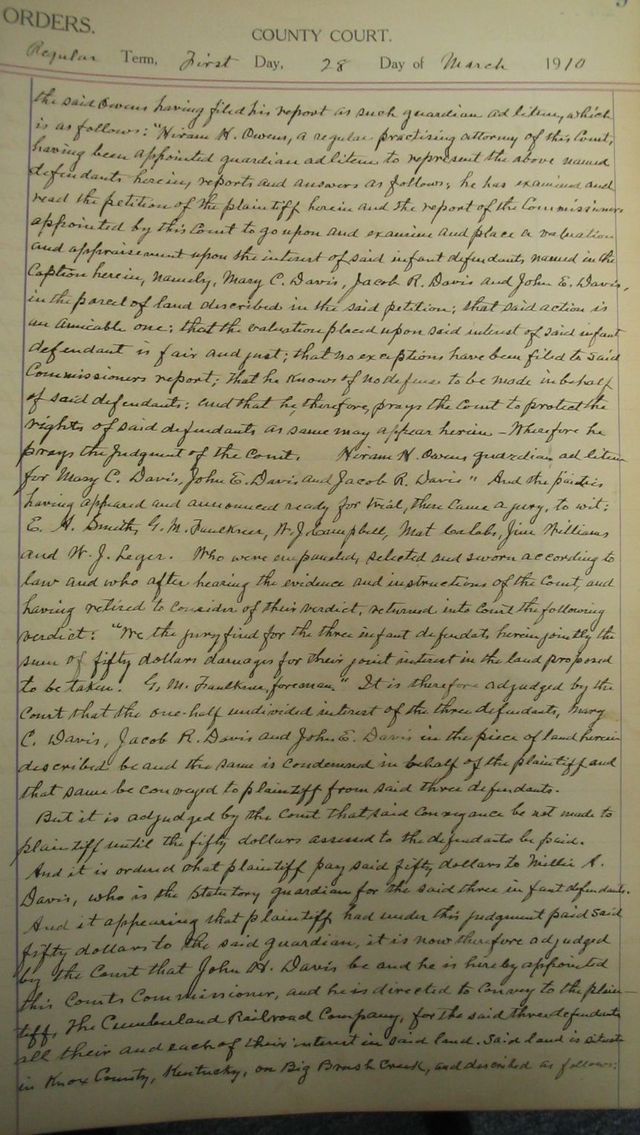 ORDERS.
COUNTY COURT.
Regular Term, First Day, 28 Day of March 1910
the said Owens having filed his report as such guardian ad litem, which
is as follows: "Hiram H. Owens, a regular practising attorney of this Court,
having been appointed guardian ad litem to represent the above named
defendants herein, reports and answers as follows; he has examined and
read the petition of the plaintiff herein and the report of the Commissioners
appointed by this Court to go upon and examine and place a valuation
and appraisement upon the interest of said infant defendants, named in the
Caption herein, namely, Mary C. Davis, Jacob R. Davis and John E. Davis,
in the parcel of land described in the said petition; that said action is
an amicable one; that the valuation placed upon said interest of said infant
defendant is fair and just; that no exceptions have been filed to said
Commissioners report; that he knows of no defense to be made in behalf
of said defendants; and that he therefore, prays the Court to protect the
rights of said defendants as same may appear herein - Wherefore he
prays the Judgment of the Court. Hiram H. Owens guardian ad litem
for Mary C. Davis, John E. Davis and Jacob R. Davis" And the parties
having appeared and announced ready for trial, then came a jury, to wit:
E. H. Smith, G. M. Faulkner, W. J. Campbell, Mat Jim Williams
and W. J. Leger. Who were empaneled, selected and sworn according to
law and who after hearing the evidence and instructions of the Court, and
having retired to consider of their verdict, returned into Court the following
verdict: "We the jury find for the three infant defendats herein jointly the
sum of fifty dollars damages for their joint interest in the land proposed
to be taken. G. M. Faulkner, foreman." It is therefore adjudged by the
Court that the one-half undivided interest of the three defendants, Mary
C. Davis, Jacob R. Davis and John E. Davis in the piece of land herein
described be and the same is condemned in behalf of the plaintiff and
that same be conveyed to plaintiff from said three defendants.
But it is adjudged by the Court that said conveyance be not made to
plaintiff until the fifty dollars assessed to the defendants be paid.
And it is ordered that plaintiff pay said fifty dollars to Millie A.
Davis, who is the statutory guardian for the said three infant defendants.
And it appearing that plaintiff had under this judgment paid said
fifty dollars to the said guardian, it is now therefore adjudged
by the Court that John H. Davis be and he is hereby appointed
this Courts Commissioner, and he is directed to convey to the plain-
tiff, The Cumberland Railroad Company, for the said three defendants
all their and each of their interest in said land. Said land is situate
in Knox County, Kentucky, on Big Brush Creek, and described as follows: